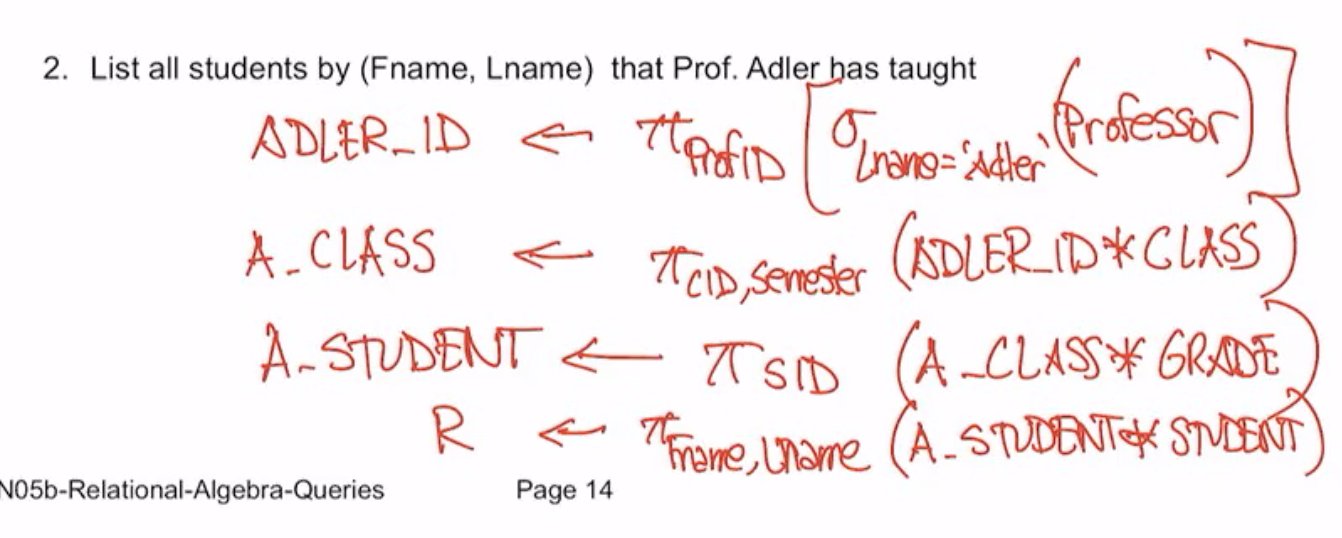 2. List all students by (Fname, Lname) that Prof. Adler has taught
ADLER_ID ← π ProfID [σ Lname='Adler' (Professor)]
A_CLASS ← π CID, Semester (ADLER_ID * CLASS)
A_STUDENT ← π SID (A_CLASS * GRADE)
R ← π Fname, Lname (A_STUDENT * STUDENT)
N05b-Relational-Algebra-Queries Page 14